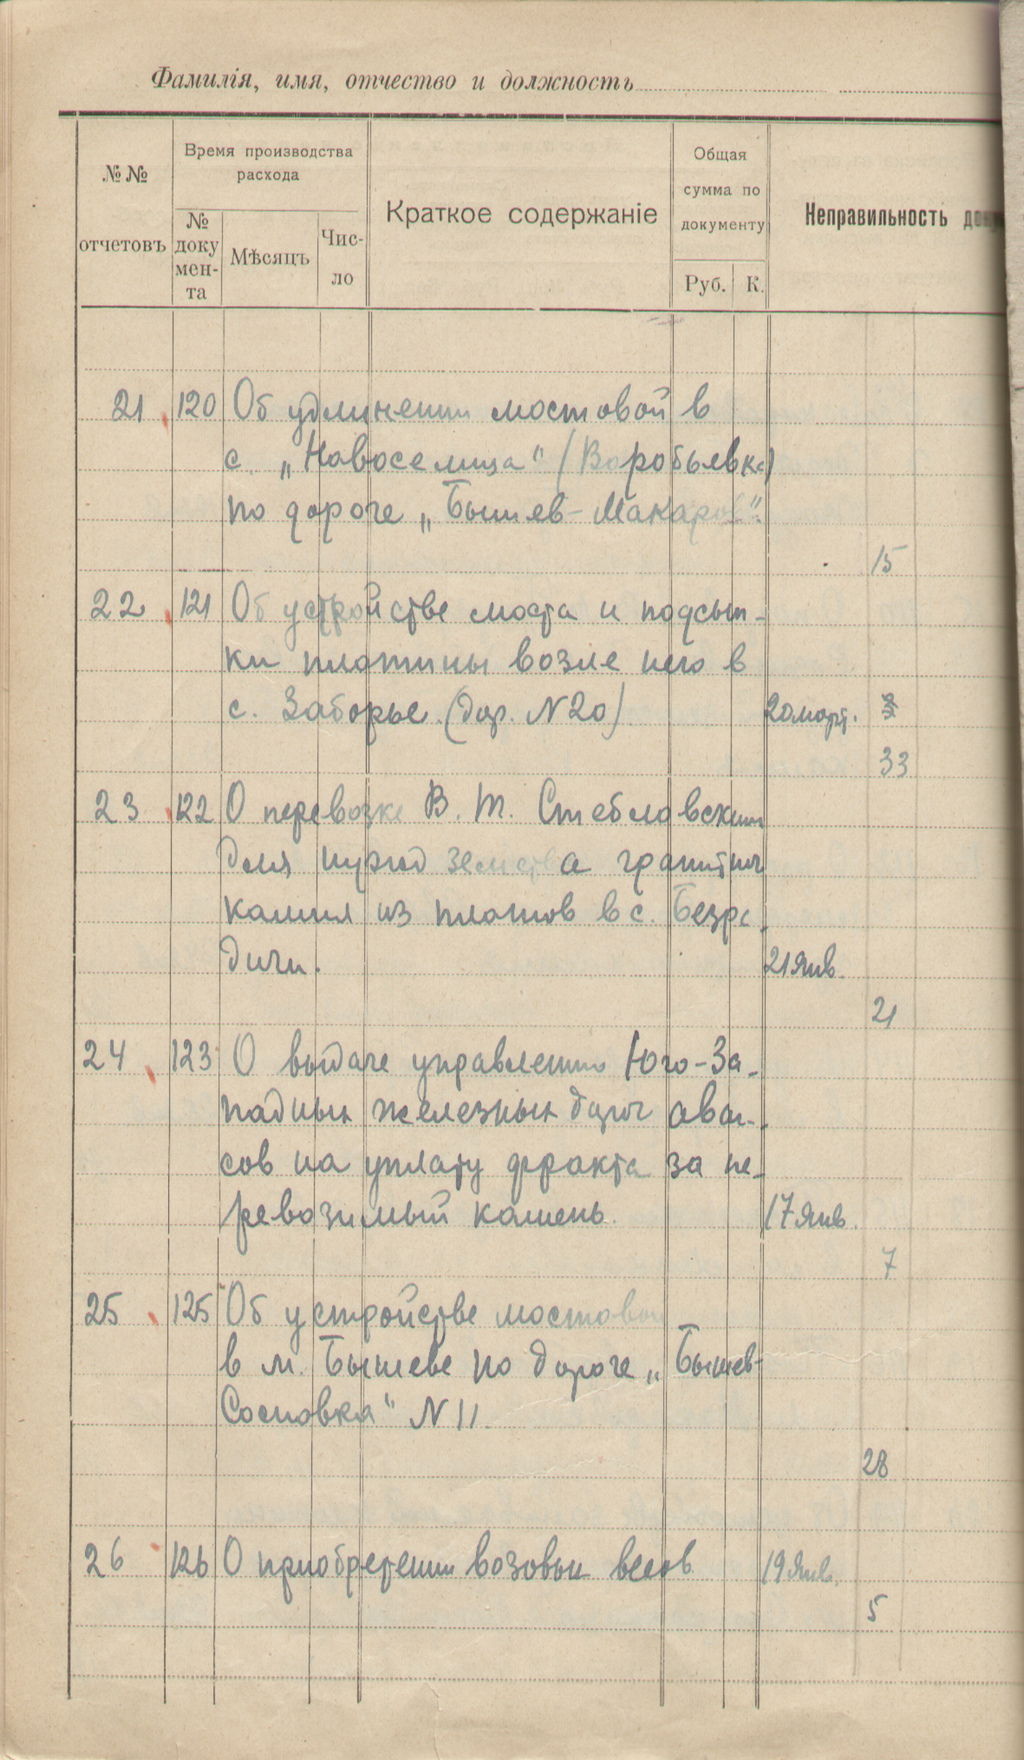 Фамилія, имя, отчество и должность
№№ отчетовъ
Время производства расхода
№ доку мен- та
Мѣсяцъ
Чис- ло
Краткое содержаніе
Общая сумма по документу
Руб. К.
Неправильность
21 120 Об удлинении мостовой в
с. „Новоселица" (Воробьевка)
по дороге „Бышев-Макаров".
15
22 121 Об устройстве моста и подсып-
ки плотины возле него в
с. Заборье. (дор. N 20) 20 март.
33
23 122 О перевозке В. Т. Стебловским
для нужд земства гранитног
камня из плотов в с. Безра
дичи. 21 Янв.
21
24 123 О выдаче управлению Юго-За-
падных железных дорог аван-
сов на уплату фрахта за пе-
ревозимый камень. 17 Янв.
7
25 125 Об устройстве мостовой
в м. Бышеве по дороге „Бышев-
Сосновка" N 11.
28
26 126 О приобретении возовых весов 19 Янв.
5